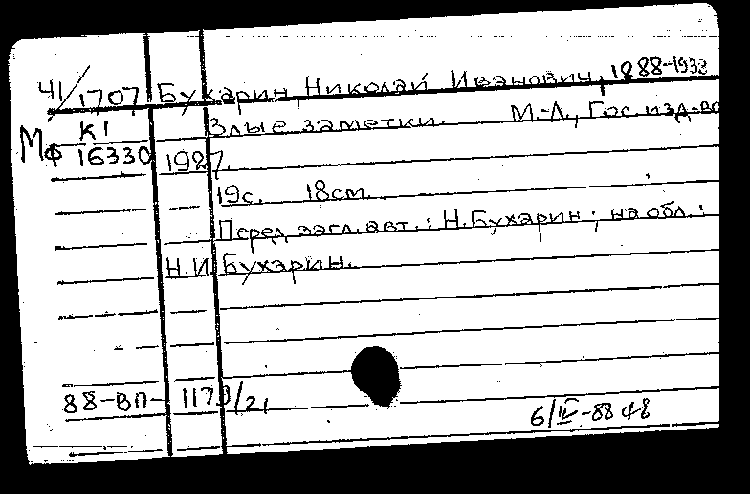 41/1707 Бухарин, Николай Иванович, 1888-1938
К1 Злые заметки. М.-Л., Гос. изд-во
Мф 16330 1927.
19с. 18см.
Перед загл. авт.: Н. Бухарин; на обл.:
Н.И. Бухарин.
88-ВП- 1170/21
6/IV-88 48